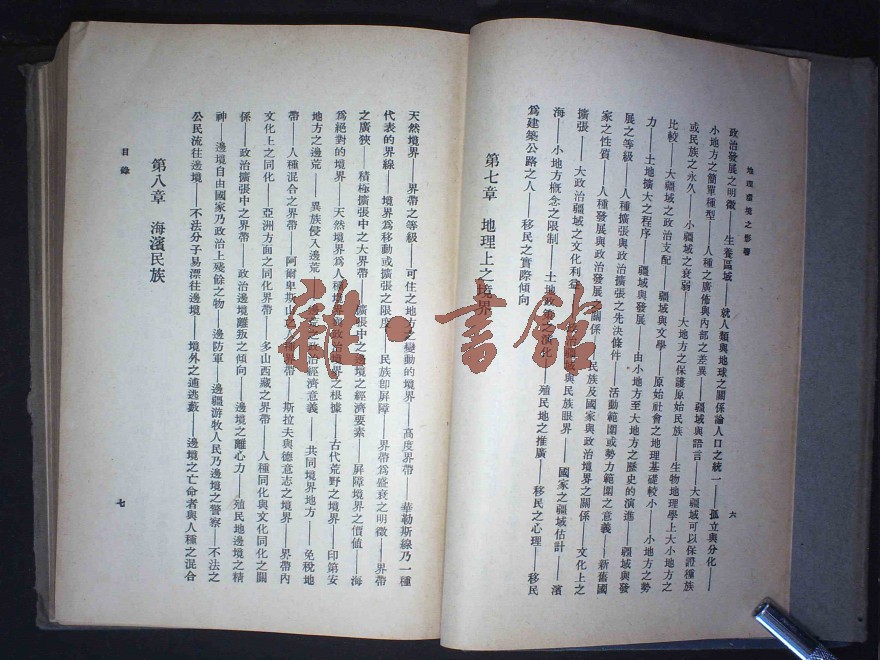 地理環境之影響
六
政治發展之明徵——生養區域——就人類與地球之關係論人口之統一——孤立與分化——
小地方之簡單種型——人種之廣佈與內部之差異——疆域與語言——大疆域可以保證種族
或民族之永久——小疆域之衰弱——大地方之保護原始民族——生物地理學上大小地方之
比較——大疆域之政治支配——疆域與文學——原始社會之地理基礎較小——小地方之勢
力——土地擴大之程序——疆域與發展——由小地方至大地方之歷史的演進——疆域與發
展之等級——人種擴張與政治擴張之先決條件——活動範圍或勢力範圍之意義——新舊國
家之性質——人種發展與政治發展之關係——民族及國家與政治境界之關係——文化上之
擴張——大政治疆域之文化利益——政治疆域與民族眼界——國家之疆域估計——濱
海——小地方概念之限制——土地政策之演化——殖民地之推廣——移民之心理——移民
為建築公路之人——移民之實際傾向
第七章 地理上之境界
天然境界——界帶之等級——可住之地方之變動的境界——高度界帶——華勒斯線乃一種
代表的界線——境界為移動或擴張之限度——民族卽屏障——界帶為盛衰之明徵——界帶
之廣狹——積極擴張中之大界帶——擴張中之邊境之經濟要素——屏障境界之價值——海
為絕對的境界——天然境界為人種境界與政治境界之根據——古代荒野之境界——印第安
地方之邊荒——異族侵入邊荒——邊荒之政治經濟意義——共同境界地方——免稅地
帶——人種混合之界帶——阿爾卑斯山之 界帶——斯拉夫與德意志之境界——界帶內
文化上之同化——亞洲方面之同化界帶——多山西藏之界帶——人種同化與文化同化之關
係——政治擴張中之界帶——政治邊境離叛之傾向——邊境之離心力——殖民地邊境之精
神——邊境自由國家乃政治上殘餘之物——邊防軍——邊疆游牧人民乃邊境之警察——不法之
公民流往邊境——不法分子易漂往邊境——境外之逋逃藪——邊境之亡命者與人種之混合
第八章 海濱民族
目錄
七
雜·書館